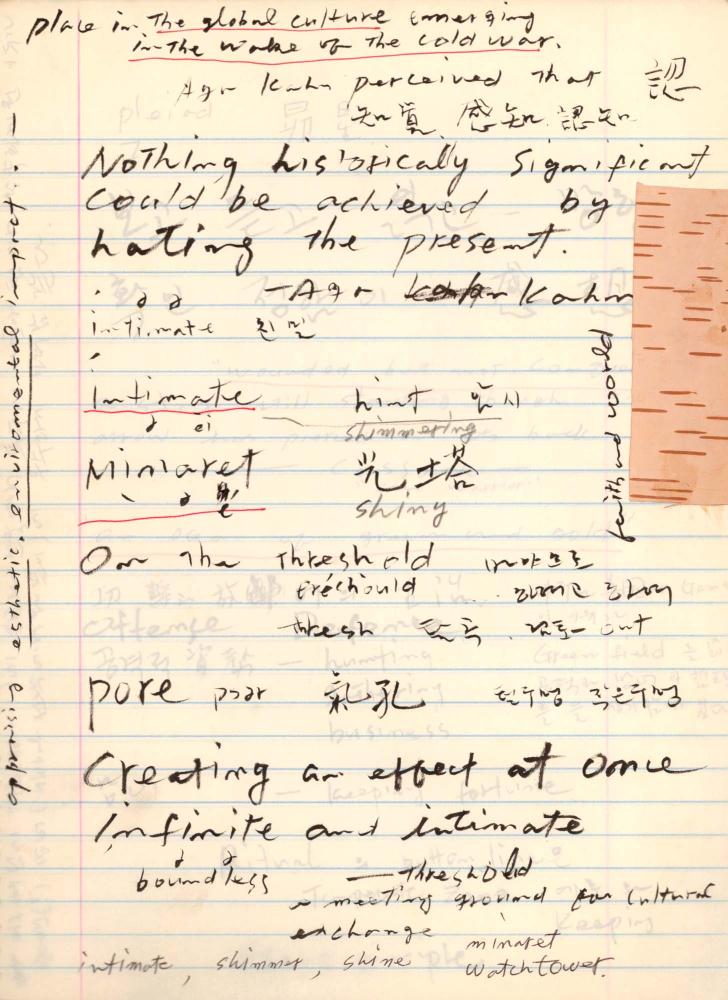 place in The global culture emerging
in the wake of the cold war.
Aga Kahn perceived that 認
知覚 感知 認知
Nothing historically significant
could be achieved by
hating the present.
- Aga Kahn
intimate 친밀
Intimate hint 암시
shimmering
ei
Minaret 光塔
shiny
faith and world
On the threshold 바야흐로
thresh
pore poar 氣孔 털구멍 작은구멍
Creating an effect at once
infinite and intimate
boundless — threshold
a meeting ground for cultural
exchange
minaret
intimate, shimmer, shine watchtower.
appraising esthetic, enviromental impact. —